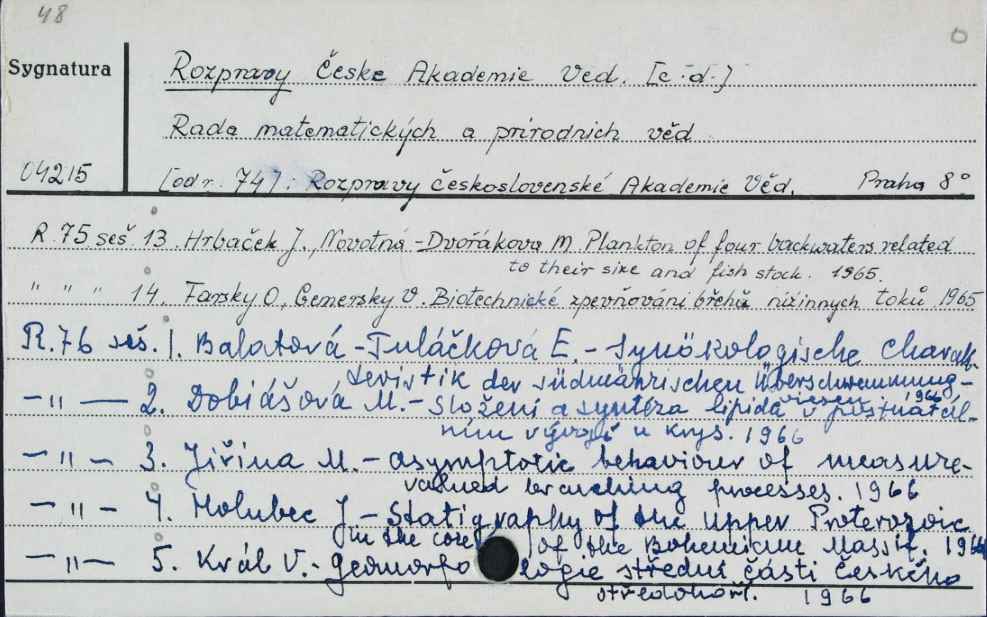 48
Sygnatura
Rozpravy Česke Akademie Ved. [c.d.]
Rada matematických a prírodních věd
04215
[od r. 74]: Rozpravy Československé Akademie Věd. Praha 8°
R. 75 seš 13. Hrbaček J., Novotná-Dvořákova M. Plankton of four backwaters related
to their size and fish stock. 1965.
" " " 14. Farsky O., Gemersky V. Biotechnické zpevňováni břehů nižinnych toků 1965
R. 76 seš. 1. Balatová-Tuláčková E. - Synökologische Charak-
teristik der südmährischen Überschwemmung-
wiesen 1966
– " – 2. Dobiášová M. - Složeni a syntéza lipida v postnatál-
ním vývoji u krys. 1966
– " – 3. Jiřina M. - Asymptotic behaviour of measure-
valued branching processes. 1966
– " – 4. Holubec J. - Statigraphy of the Upper Proterozoic
in the core of the Bohemian Massif. 1966
– " – 5. Král V. - Geomorfologie středni části Českého
středohoří. 1966